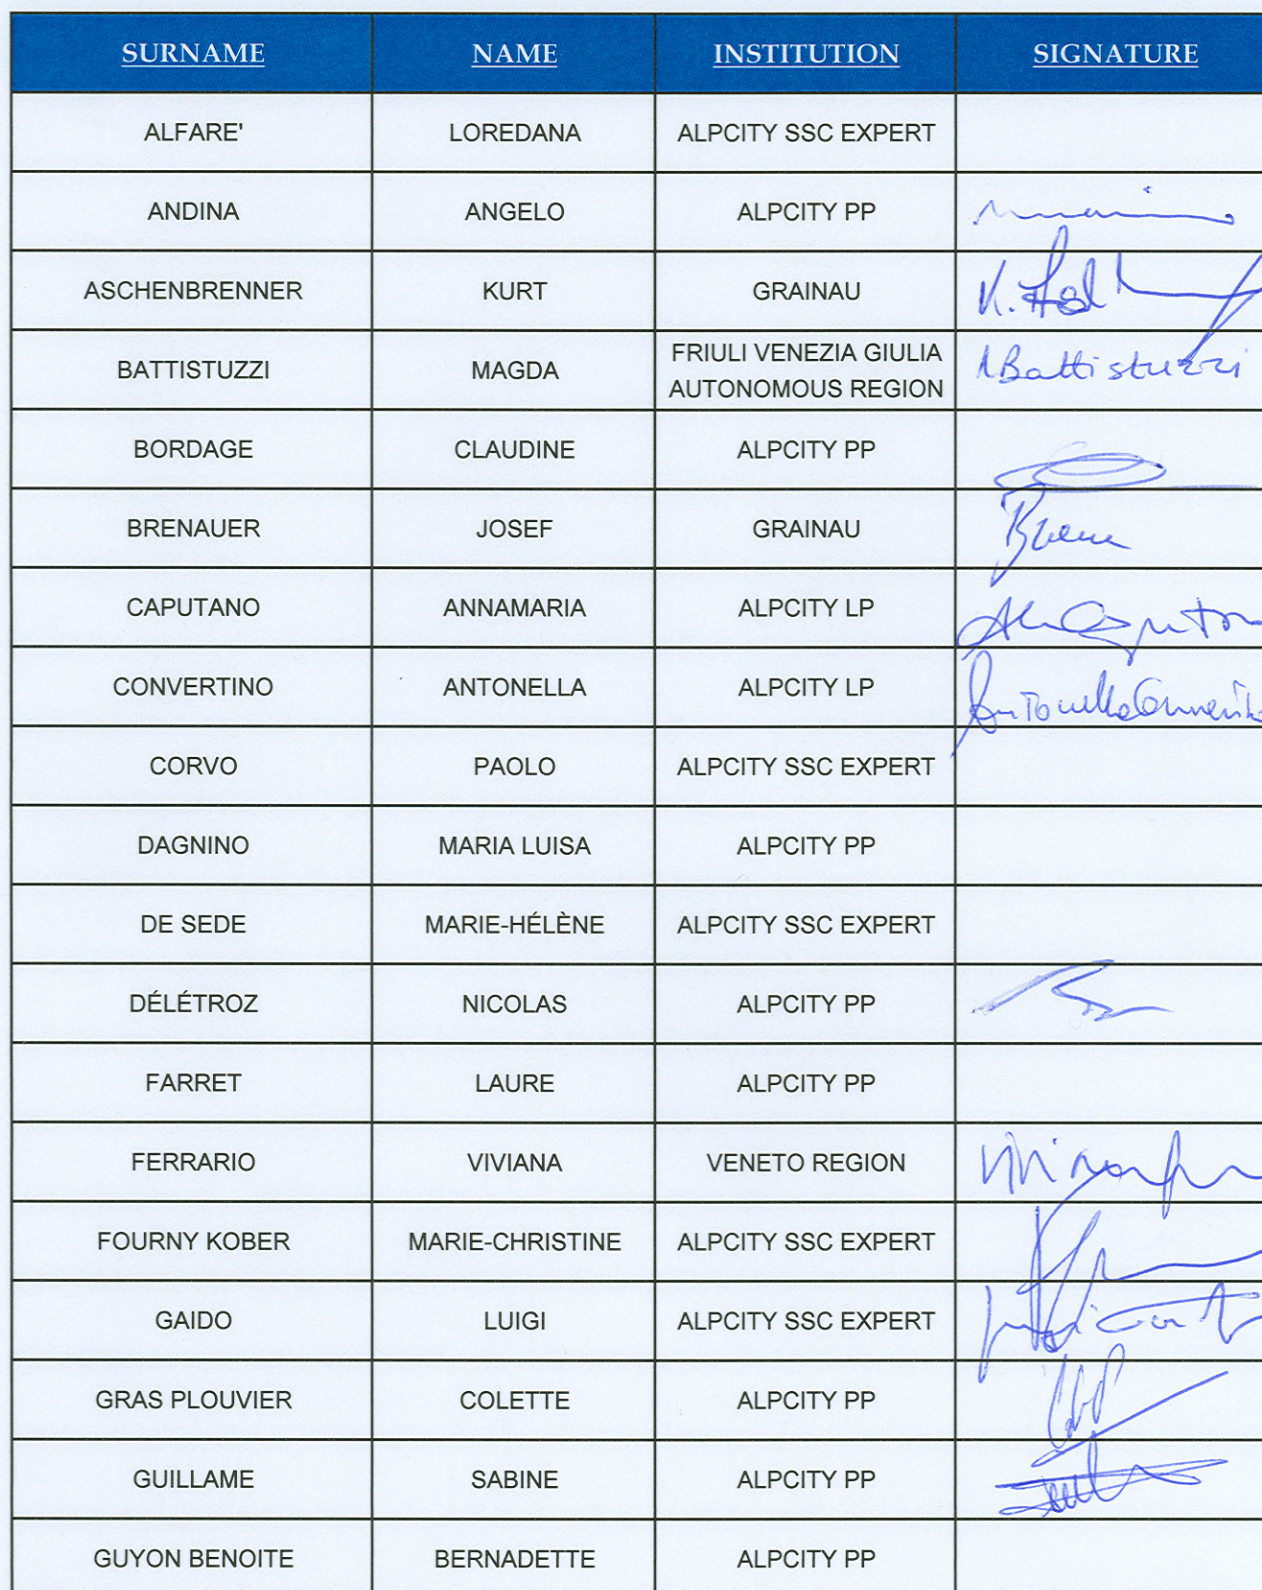 SURNAME NAME INSTITUTION SIGNATURE
ALFARE' LOREDANA ALPCITY SSC EXPERT
ANDINA ANGELO ALPCITY PP
ASCHENBRENNER KURT GRAINAU K.
BATTISTUZZI MAGDA FRIULI VENEZIA GIULIA
AUTONOMOUS REGION Battistuzzi
BORDAGE CLAUDINE ALPCITY PP
BRENAUER JOSEF GRAINAU
CAPUTANO ANNAMARIA ALPCITY LP
CONVERTINO ANTONELLA ALPCITY LP Antonella
CORVO PAOLO ALPCITY SSC EXPERT
DAGNINO MARIA LUISA ALPCITY PP
DE SEDE MARIE-HÉLÈNE ALPCITY SSC EXPERT
DÉLÉTROZ NICOLAS ALPCITY PP
FARRET LAURE ALPCITY PP
FERRARIO VIVIANA VENETO REGION
FOURNY KOBER MARIE-CHRISTINE ALPCITY SSC EXPERT
GAIDO LUIGI ALPCITY SSC EXPERT
GRAS PLOUVIER COLETTE ALPCITY PP
GUILLAME SABINE ALPCITY PP
GUYON BENOITE BERNADETTE ALPCITY PP